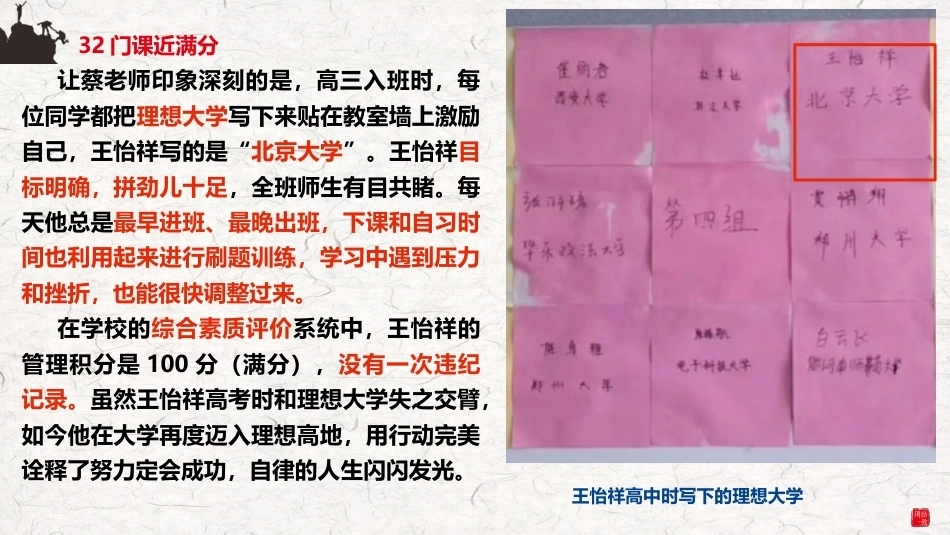 32门课近满分
让蔡老师印象深刻的是，高三入班时，每
位同学都把理想大学写下来贴在教室墙上激励
自己，王怡祥写的是“北京大学”。王怡祥目
标明确，拼劲儿十足，全班师生有目共睹。每
天他总是最早进班、最晚出班，下课和自习时
间也利用起来进行刷题训练，学习中遇到压力
和挫折，也能很快调整过来。
在学校的综合素质评价系统中，王怡祥的
管理积分是 100 分（满分），没有一次违纪
记录。虽然王怡祥高考时和理想大学失之交臂，
如今他在大学再度迈入理想高地，用行动完美
诠释了努力定会成功，自律的人生闪闪发光。
西安大学
浙江大学
王怡祥
北京大学
华东政法大学
第四组
郑州大学
郑州大学
电子科技大学
白云飞
王怡祥高中时写下的理想大学